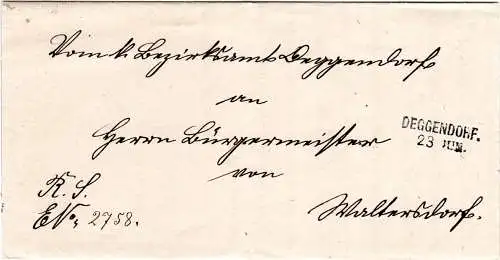 Vom k. Bezirksamt Deggendorf
an
Herrn Bürgermeister
von
Waltersdorf.
DEGGENDORF.
23 JUN.
R. S.
E№ 2758.